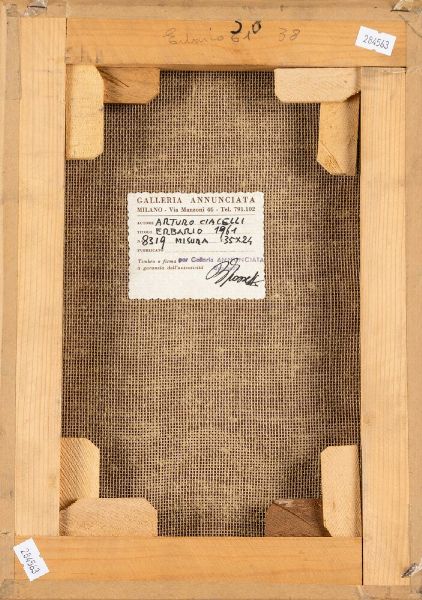 Erbario 61 38
284563
GALLERIA ANNUNCIATA
MILANO - Via Manzoni 46 - Tel. 791.102
AUTORE ARTURO CIACELLI
TITOLO ERBARIO 1961
N. 8319 MISURA 35X24
PUBBLICATO
Timbro e firma per Galleria ANNUNCIATA
a garanzia dell'autenticità
284563